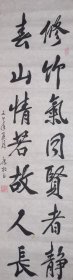 修竹氣同賢者靜
春山情若故人長